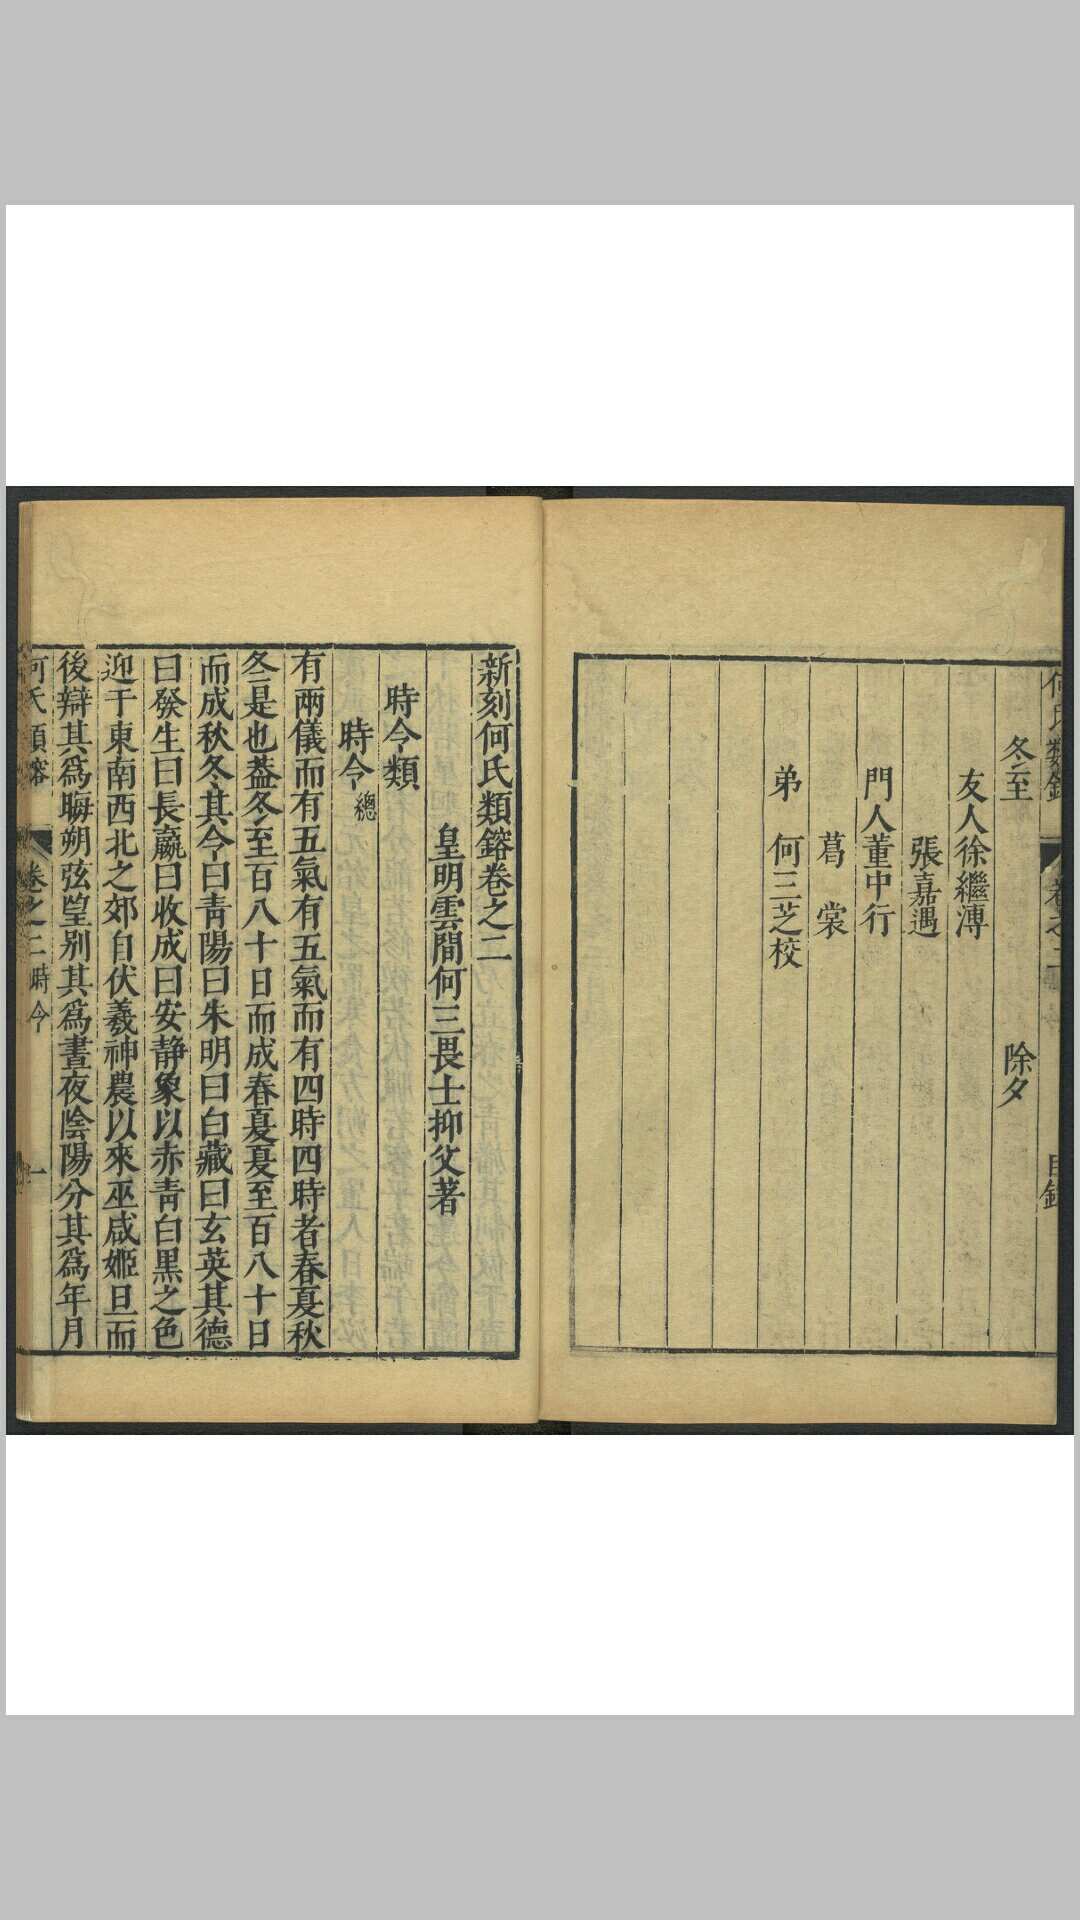 冬至　除夕
友人徐繼溥
張嘉遇
門人董中行
葛裳
弟　何三芝校
新刻何氏類鎔卷之二
皇明雲間何三畏士抑父著
時令類
時令總
有兩儀而有五氣有五氣而有四時四時者春夏秋
冬是也蓋冬至百八十日而成春夏夏至百八十日
而成秋冬其令曰青陽曰朱明曰白藏曰玄英其德
曰發生曰長嬴曰收成曰安静象以赤青白黒之色
迎于東南西北之郊自伏羲神農以來巫咸姬旦而
後辯其爲晦朔弦望别其爲晝夜陰陽分其爲年月
何氏類鎔　卷之二時令　一